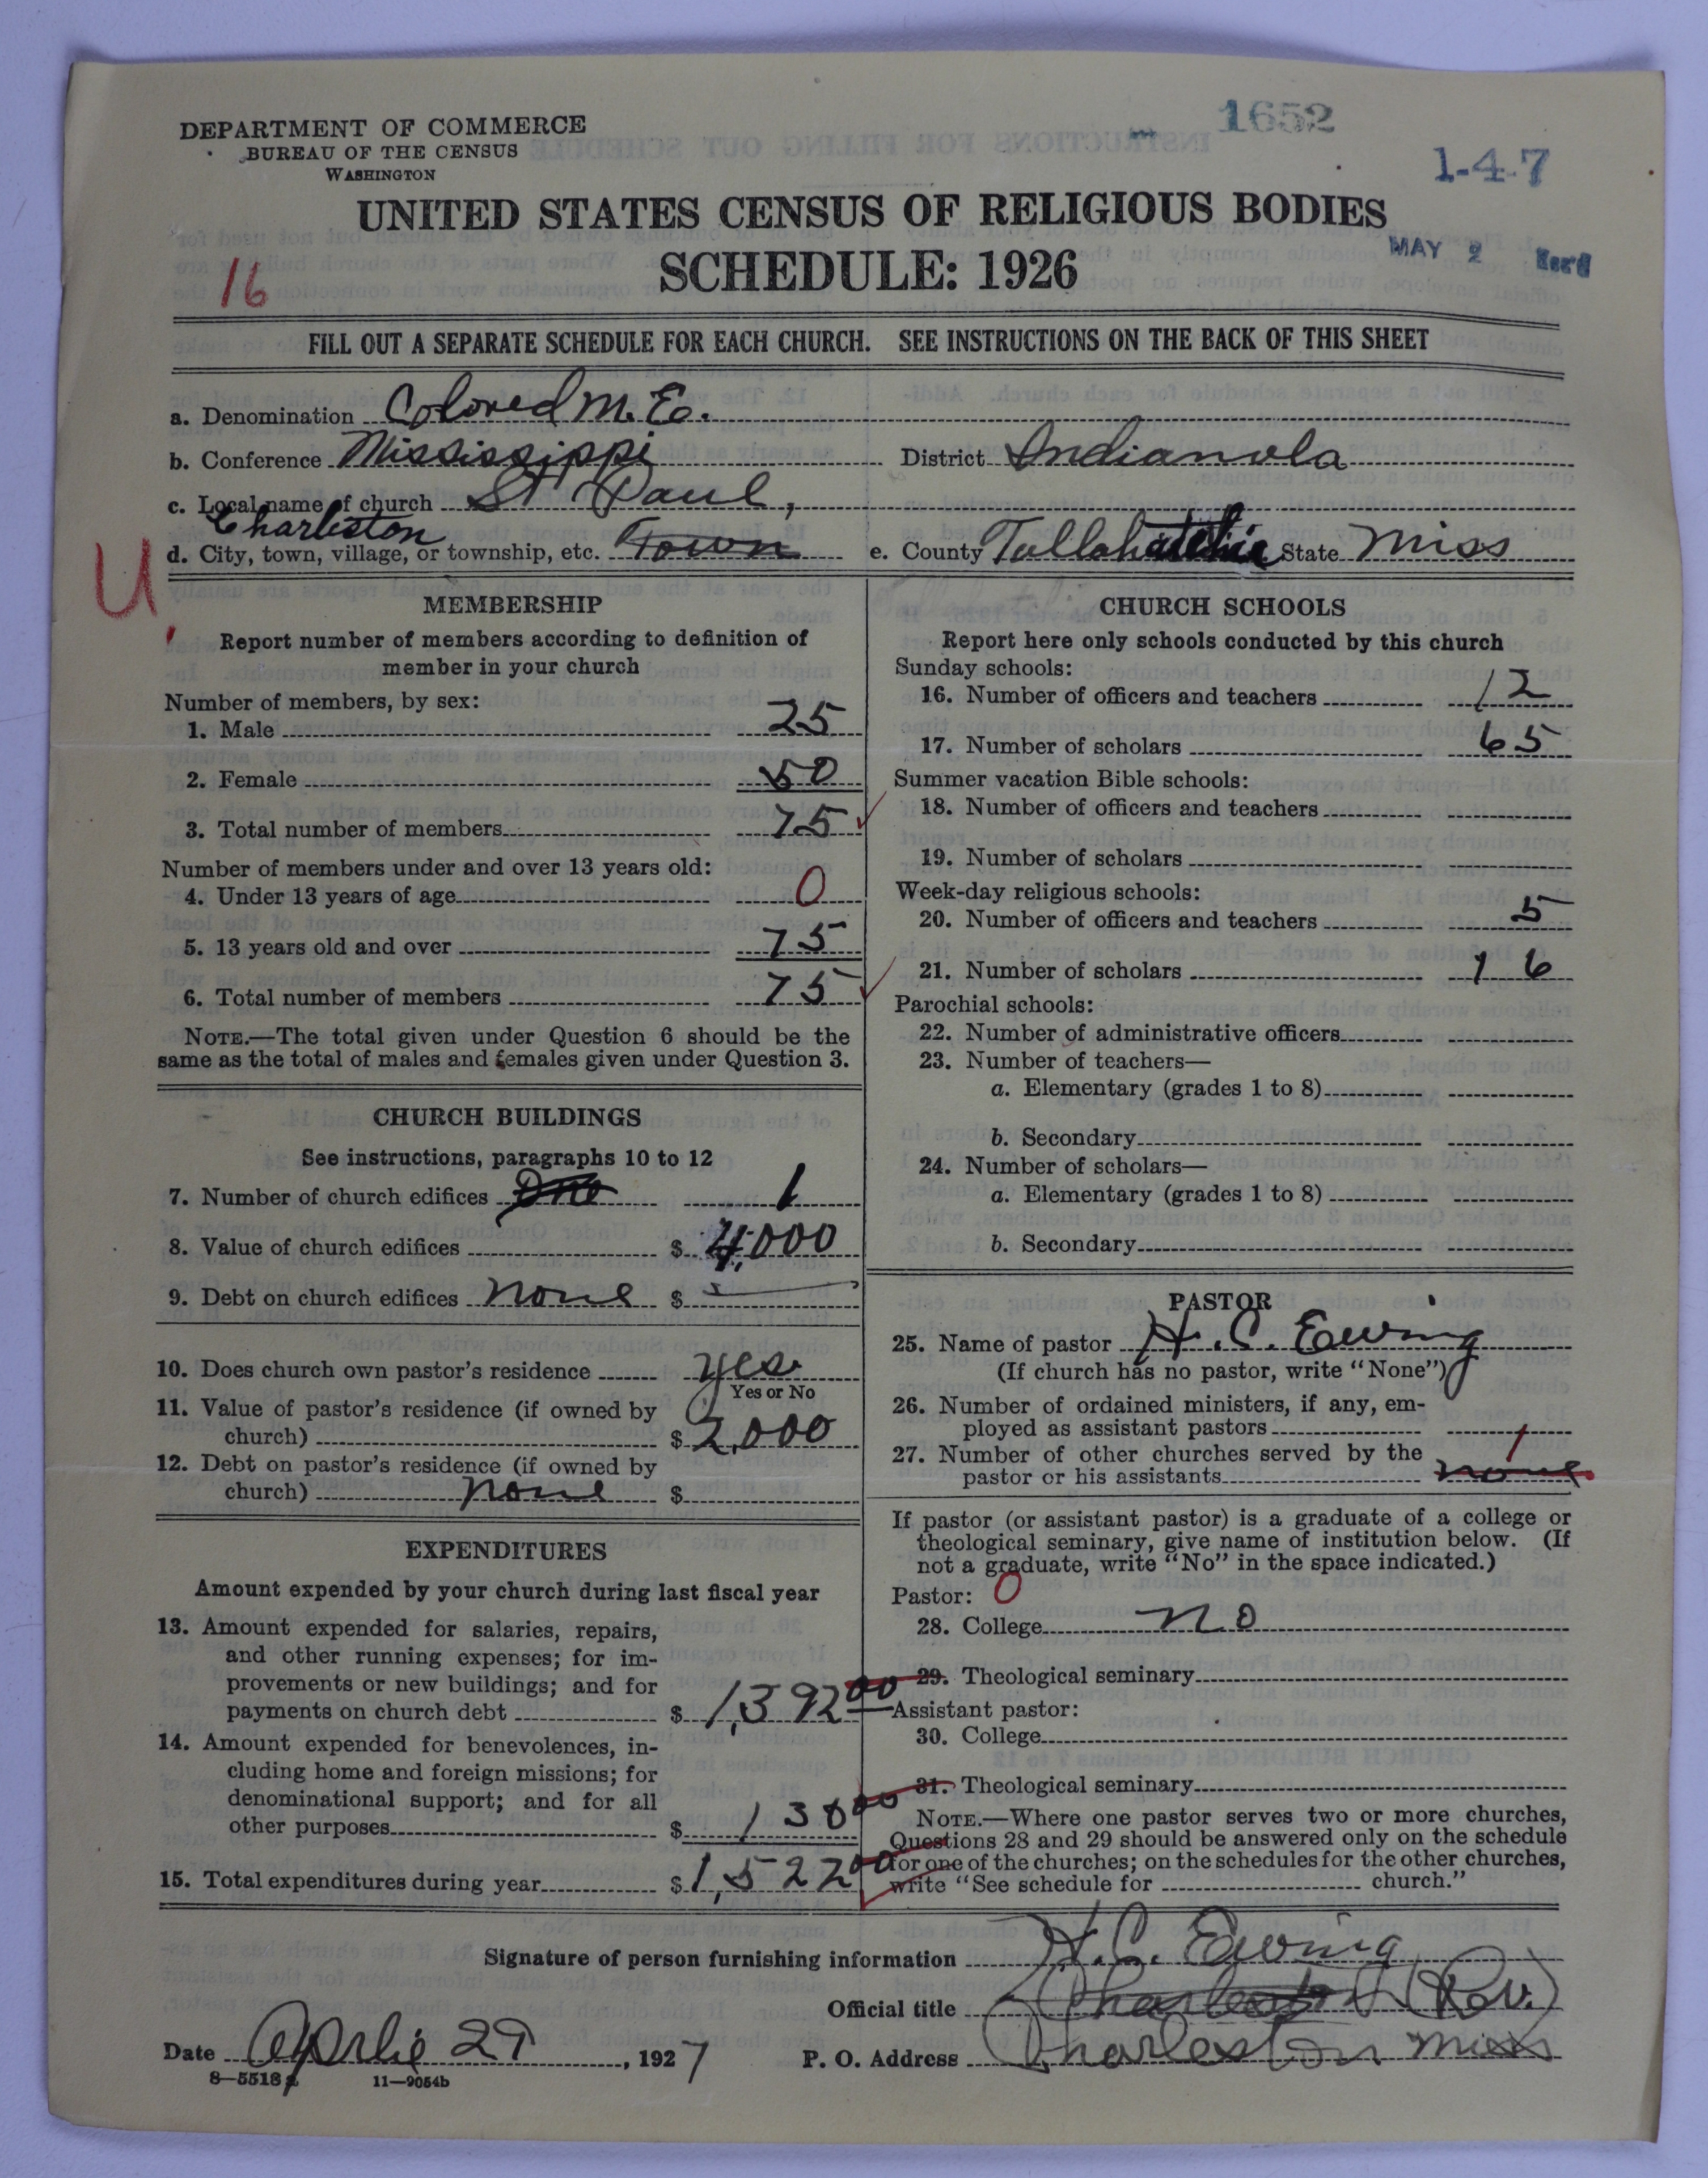 1652
DEPARTMENT OF COMMERCE
BUREAU OF THE CENSUS
WASHINGTON
1-4-7
UNITED STATES CENSUS OF RELIGIOUS BODIES
SCHEDULE: 1926
MAY 2 Rec'd
16
FILL OUT A SEPARATE SCHEDULE FOR EACH CHURCH. SEE INSTRUCTIONS ON THE BACK OF THIS SHEET
a. Denomination Colored M. E.
b. Conference Mississippi District Indianola
c. Local name of church St Paul,
Charleston
d. City, town, village, or township, etc. Town e. County Tallahatchie State Miss
U.
MEMBERSHIP
Report number of members according to definition of
member in your church
Number of members, by sex:
1. Male 25
2. Female 50
3. Total number of members 75
Number of members under and over 13 years old:
4. Under 13 years of age 0
5. 13 years old and over 75
6. Total number of members 75
NOTE.—The total given under Question 6 should be the
same as the total of males and females given under Question 3.
CHURCH BUILDINGS
See instructions, paragraphs 10 to 12
7. Number of church edifices One 1
8. Value of church edifices $ 4,000
9. Debt on church edifices none $
10. Does church own pastor's residence yes
Yes or No
11. Value of pastor's residence (if owned by
church) $ 2,000
12. Debt on pastor's residence (if owned by
church) none $
EXPENDITURES
Amount expended by your church during last fiscal year
13. Amount expended for salaries, repairs,
and other running expenses; for im-
provements or new buildings; and for
payments on church debt $ 1,392 00
14. Amount expended for benevolences, in-
cluding home and foreign missions; for
denominational support; and for all
other purposes $ 130 00
15. Total expenditures during year $ 1,522 00
CHURCH SCHOOLS
Report here only schools conducted by this church
Sunday schools:
16. Number of officers and teachers 12
17. Number of scholars 65
Summer vacation Bible schools:
18. Number of officers and teachers
19. Number of scholars
Week-day religious schools:
20. Number of officers and teachers 5
21. Number of scholars 16
Parochial schools:
22. Number of administrative officers
23. Number of teachers—
a. Elementary (grades 1 to 8)
b. Secondary
24. Number of scholars—
a. Elementary (grades 1 to 8)
b. Secondary
PASTOR
25. Name of pastor H. C. Ewing
(If church has no pastor, write "None")
26. Number of ordained ministers, if any, em-
ployed as assistant pastors
27. Number of other churches served by the
pastor or his assistants none 1
If pastor (or assistant pastor) is a graduate of a college or
theological seminary, give name of institution below. (If
not a graduate, write "No" in the space indicated.)
Pastor: 0
28. College no
29. Theological seminary
Assistant pastor:
30. College
31. Theological seminary
NOTE.—Where one pastor serves two or more churches,
Questions 28 and 29 should be answered only on the schedule
for one of the churches; on the schedules for the other churches,
write "See schedule for church."
Signature of person furnishing information H. C. Ewing
Official title Charleston (Rev.)
Date Aprlie 29, 1927 P. O. Address Charleston Miss
8—5518a 11—9054b